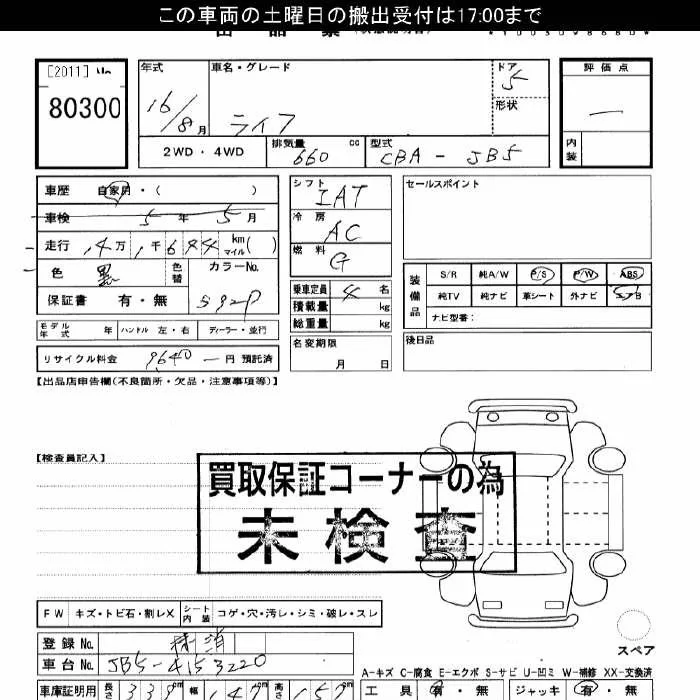 この車両の土曜日の搬出受付は17:00まで
[2011] No
80300
年式 16/8月
車名・グレード ライフ
ドア 5
形状
評価点 —
内装
2WD・4WD
排気量 660 cc
型式 CBA - JB5
車歴 自家用・( )
車検 5年 5月
走行 14万1千644 km マイル( )
色 黒 色替 カラーNo.
保証書 有・無 592P
モデル年式 年 ハンドル 左・右 ディーラー・並行
リサイクル料金 9640 円 預託済
シフト IAT
冷房 AC
燃料 G
乗車定員 4 名
積載量 kg
総重量 kg
名変期限 月 日
セールスポイント
装備品 S/R 純A/W P/S P/W ABS
純TV 純ナビ 革シート 外ナビ
ナビ型番:
後日品
【出品店申告欄(不良箇所・欠品・注意事項等)】
【検査員記入】
買取保証コーナーの為
未検査
FW キズ・トビ石・割レX シート内装 コゲ・穴・汚レ・シミ・破レ・スレ
登録No. 抹消
車台No. JB5-4153220
スペア
A-キズ C-腐食 E-エクボ S-サビ U-凹ミ W-補修 XX-交換済
車庫証明用 長さ 339cm 幅 147cm 高さ 157cm
工具 有・無 ジャッキ 有・無